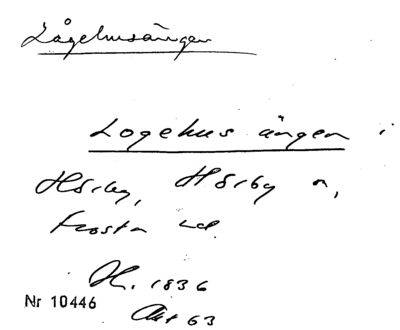 Lågehusängen
Logehus ängen i
Hörby, Hörby s,
Frosta hd.
H. 1836
Nr 10446
Akt 63